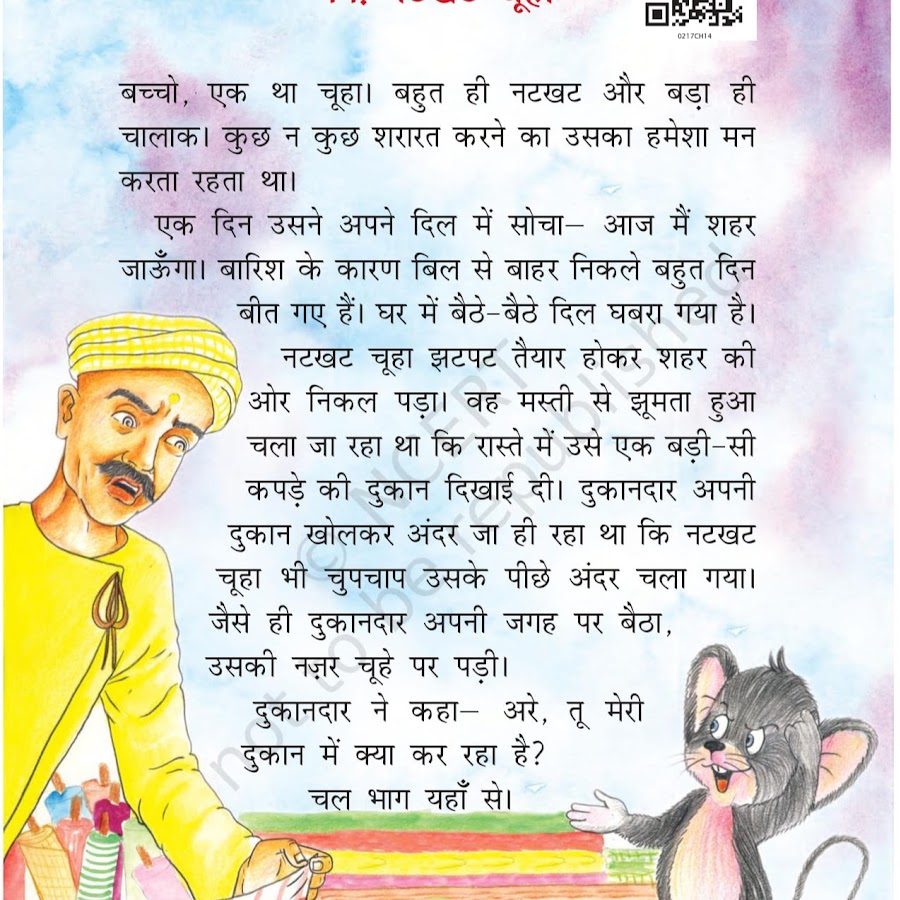 नटखट चूहा
0217CH14
बच्चो, एक था चूहा। बहुत ही नटखट और बड़ा ही
चालाक। कुछ न कुछ शरारत करने का उसका हमेशा मन
करता रहता था।
एक दिन उसने अपने दिल में सोचा– आज मैं शहर
जाऊँगा। बारिश के कारण बिल से बाहर निकले बहुत दिन
बीत गए हैं। घर में बैठे-बैठे दिल घबरा गया है।
नटखट चूहा झटपट तैयार होकर शहर की
ओर निकल पड़ा। वह मस्ती से झूमता हुआ
चला जा रहा था कि रास्ते में उसे एक बड़ी-सी
कपड़े की दुकान दिखाई दी। दुकानदार अपनी
दुकान खोलकर अंदर जा ही रहा था कि नटखट
चूहा भी चुपचाप उसके पीछे अंदर चला गया।
जैसे ही दुकानदार अपनी जगह पर बैठा,
उसकी नज़र चूहे पर पड़ी।
दुकानदार ने कहा– अरे, तू मेरी
दुकान में क्या कर रहा है?
चल भाग यहाँ से।
© NCERT
not to be republished